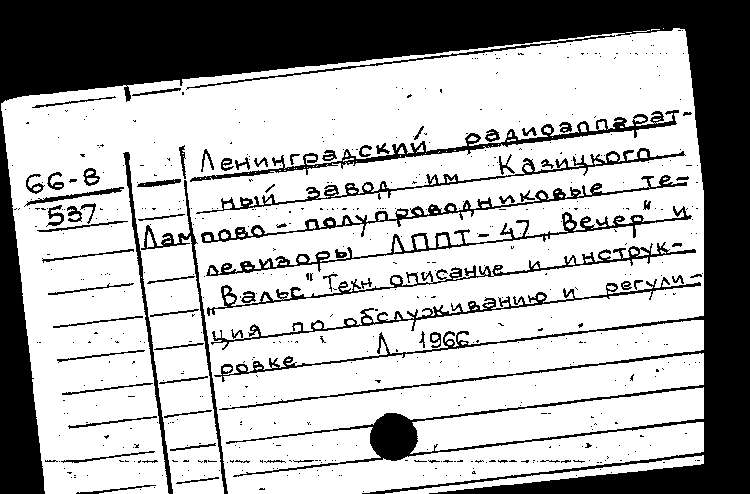 Ленинградский радиоаппарат-
66-8
537
ный завод им Казицкого
Лампово-полупроводниковые те=
левизоры ЛППТ-47 „Вечер" и
„Вальс". Техн. описание и инструк-
ция по обслуживанию и регули-
ровке. Л., 1966.